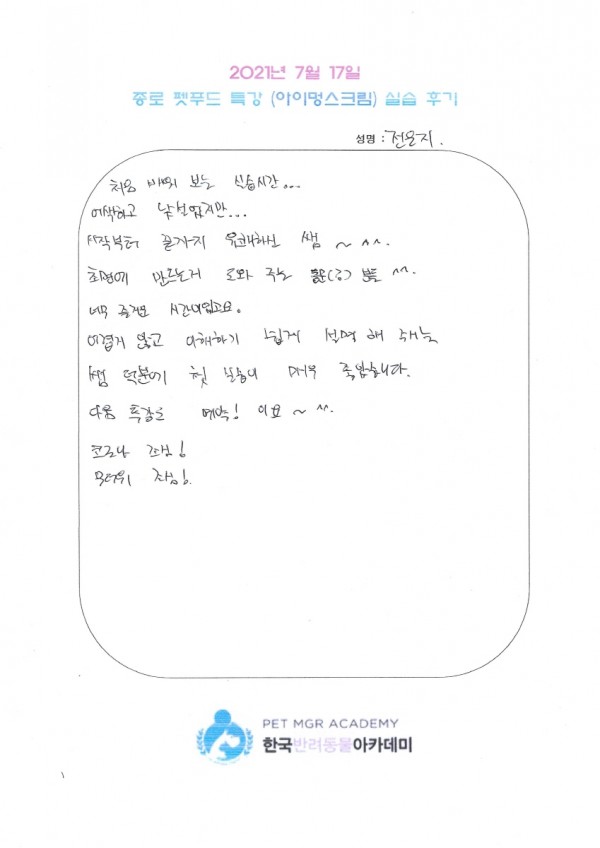 2021년 7월 17일
종로 펫푸드 특강 (아이멍스크림) 실습 후기
성명 : 전은지.
처음 보는 실습시간...
어색하고 낯설었지만...
시작부터 끝까지 유쾌하신 쌤 ~ ^^.
만드는거 도와 주는 ^^.
너무 즐거운 시간이였고요.
어렵게 않고 이해하기 쉽게 설명 해 주는
쌤 덕분에 첫 실습이 매우 즐거웠습니다.
다음 특강도 예약! 이요 ~ ^^.
코로나 조심!
무더위 조심!
PET MGR ACADEMY
한국반려동물아카데미